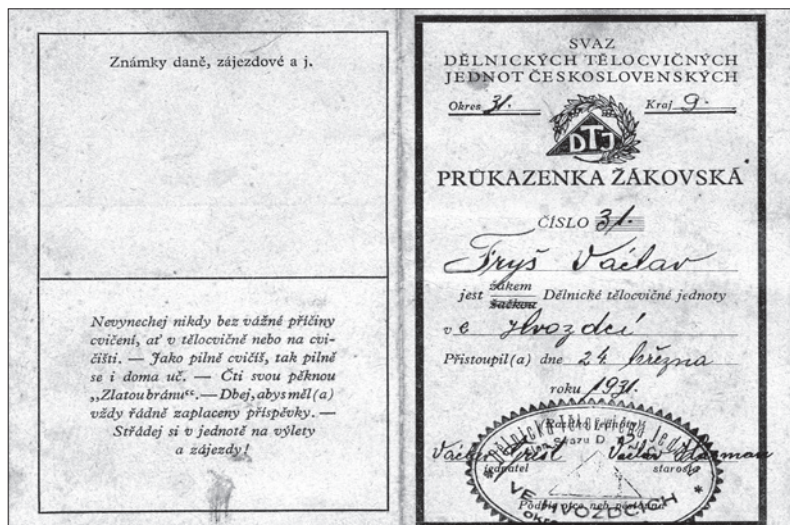 Známky daně, zájezdové a j.
Nevynechej nikdy bez vážné příčiny
cvičení, ať v tělocvičně nebo na cvi-
čišti. — Jako pilně cvičíš, tak pilně
se i doma uč. — Čti svou pěknou
„Zlatou bránu“. — Dbej, abys měl(a)
vždy řádně zaplaceny příspěvky. —
Střádej si v jednotě na výlety
a zájezdy!
SVAZ
DĚLNICKÝCH TĚLOCVIČNÝCH
JEDNOT ČESKOSLOVENSKÝCH
Okres 31. Kraj 9.
DTJ
PRŮKAZENKA ŽÁKOVSKÁ
ČÍSLO 31.
Fryš Václav
jest žákem
žačkou Dělnické tělocvičné jednoty
v e Hvozdcí
Přistoupil(a) dne 24. března
roku 1931.
(Razítko jednoty)
Dělnická Tělocvičná Jednota
Svazu D
Václav Václav
jednatel starosta
VE HVOZDCÍCH
Podpis otce neb